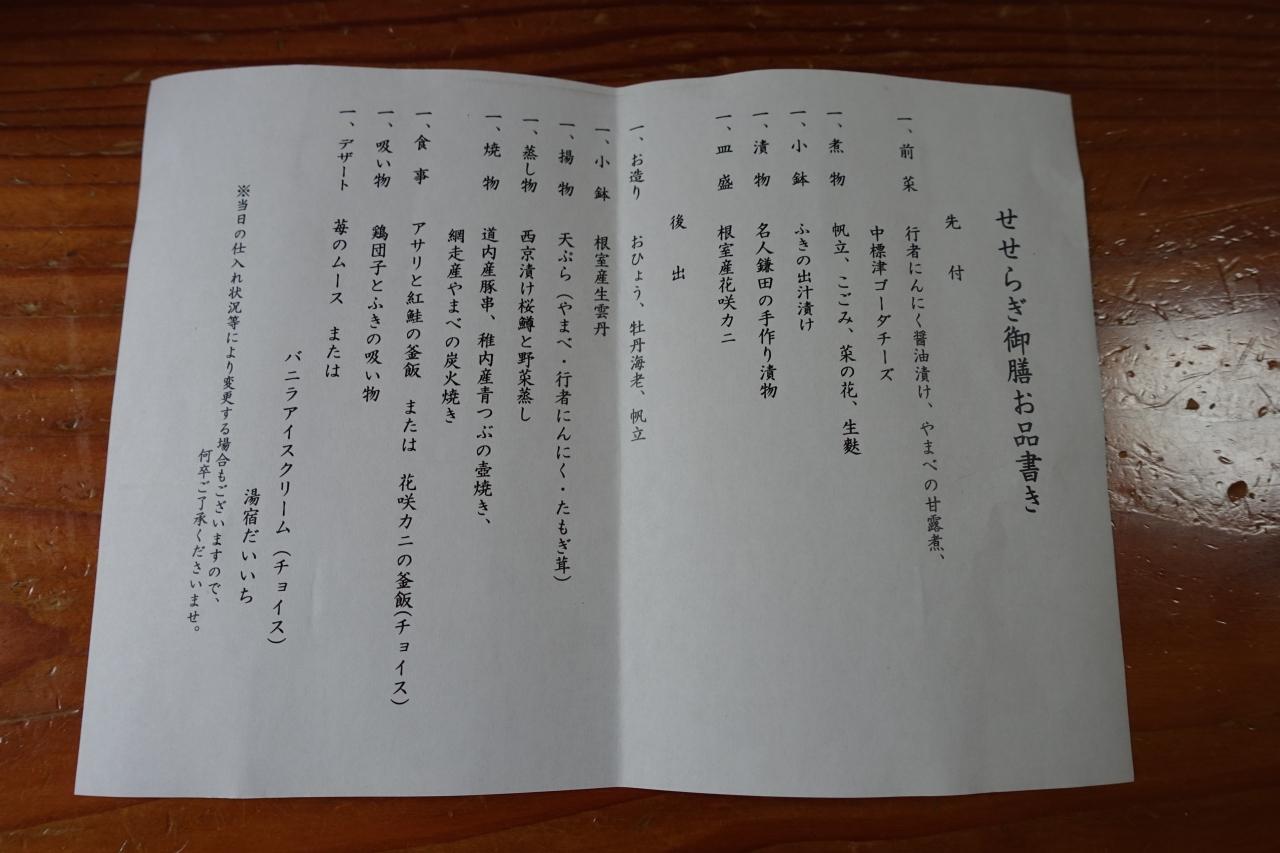 せせらぎ御膳お品書き
先付
一、前菜 行者にんにく醤油漬け、やまべの甘露煮、
中標津ゴーダチーズ
一、煮物 帆立、こごみ、菜の花、生麩
一、小鉢 ふきの出汁漬け
一、漬物 名人鎌田の手作り漬物
一、皿盛 根室産花咲カニ
後出
一、お造り おひょう、牡丹海老、帆立
一、小鉢 根室産生雲丹
一、揚物 天ぷら（やまべ・行者にんにく・たもぎ茸）
一、蒸し物 西京漬け桜鱒と野菜蒸し
一、焼物 道内産豚串、稚内産青つぶの壺焼き、
網走産やまべの炭火焼き
一、食事 アサリと紅鮭の釜飯 または 花咲カニの釜飯(チョイス)
一、吸い物 鶏団子とふきの吸い物
一、デザート 苺のムース または
バニラアイスクリーム（チョイス）
湯宿だいいち
※当日の仕入れ状況等により変更する場合もございますので、
何卒ご了承くださいませ。